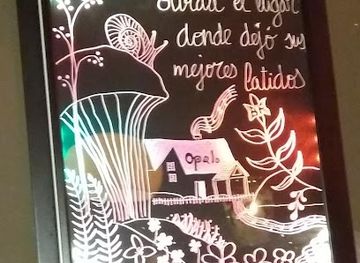 olvidar el lugar
donde dejó sus
mejores latidos
Opalo